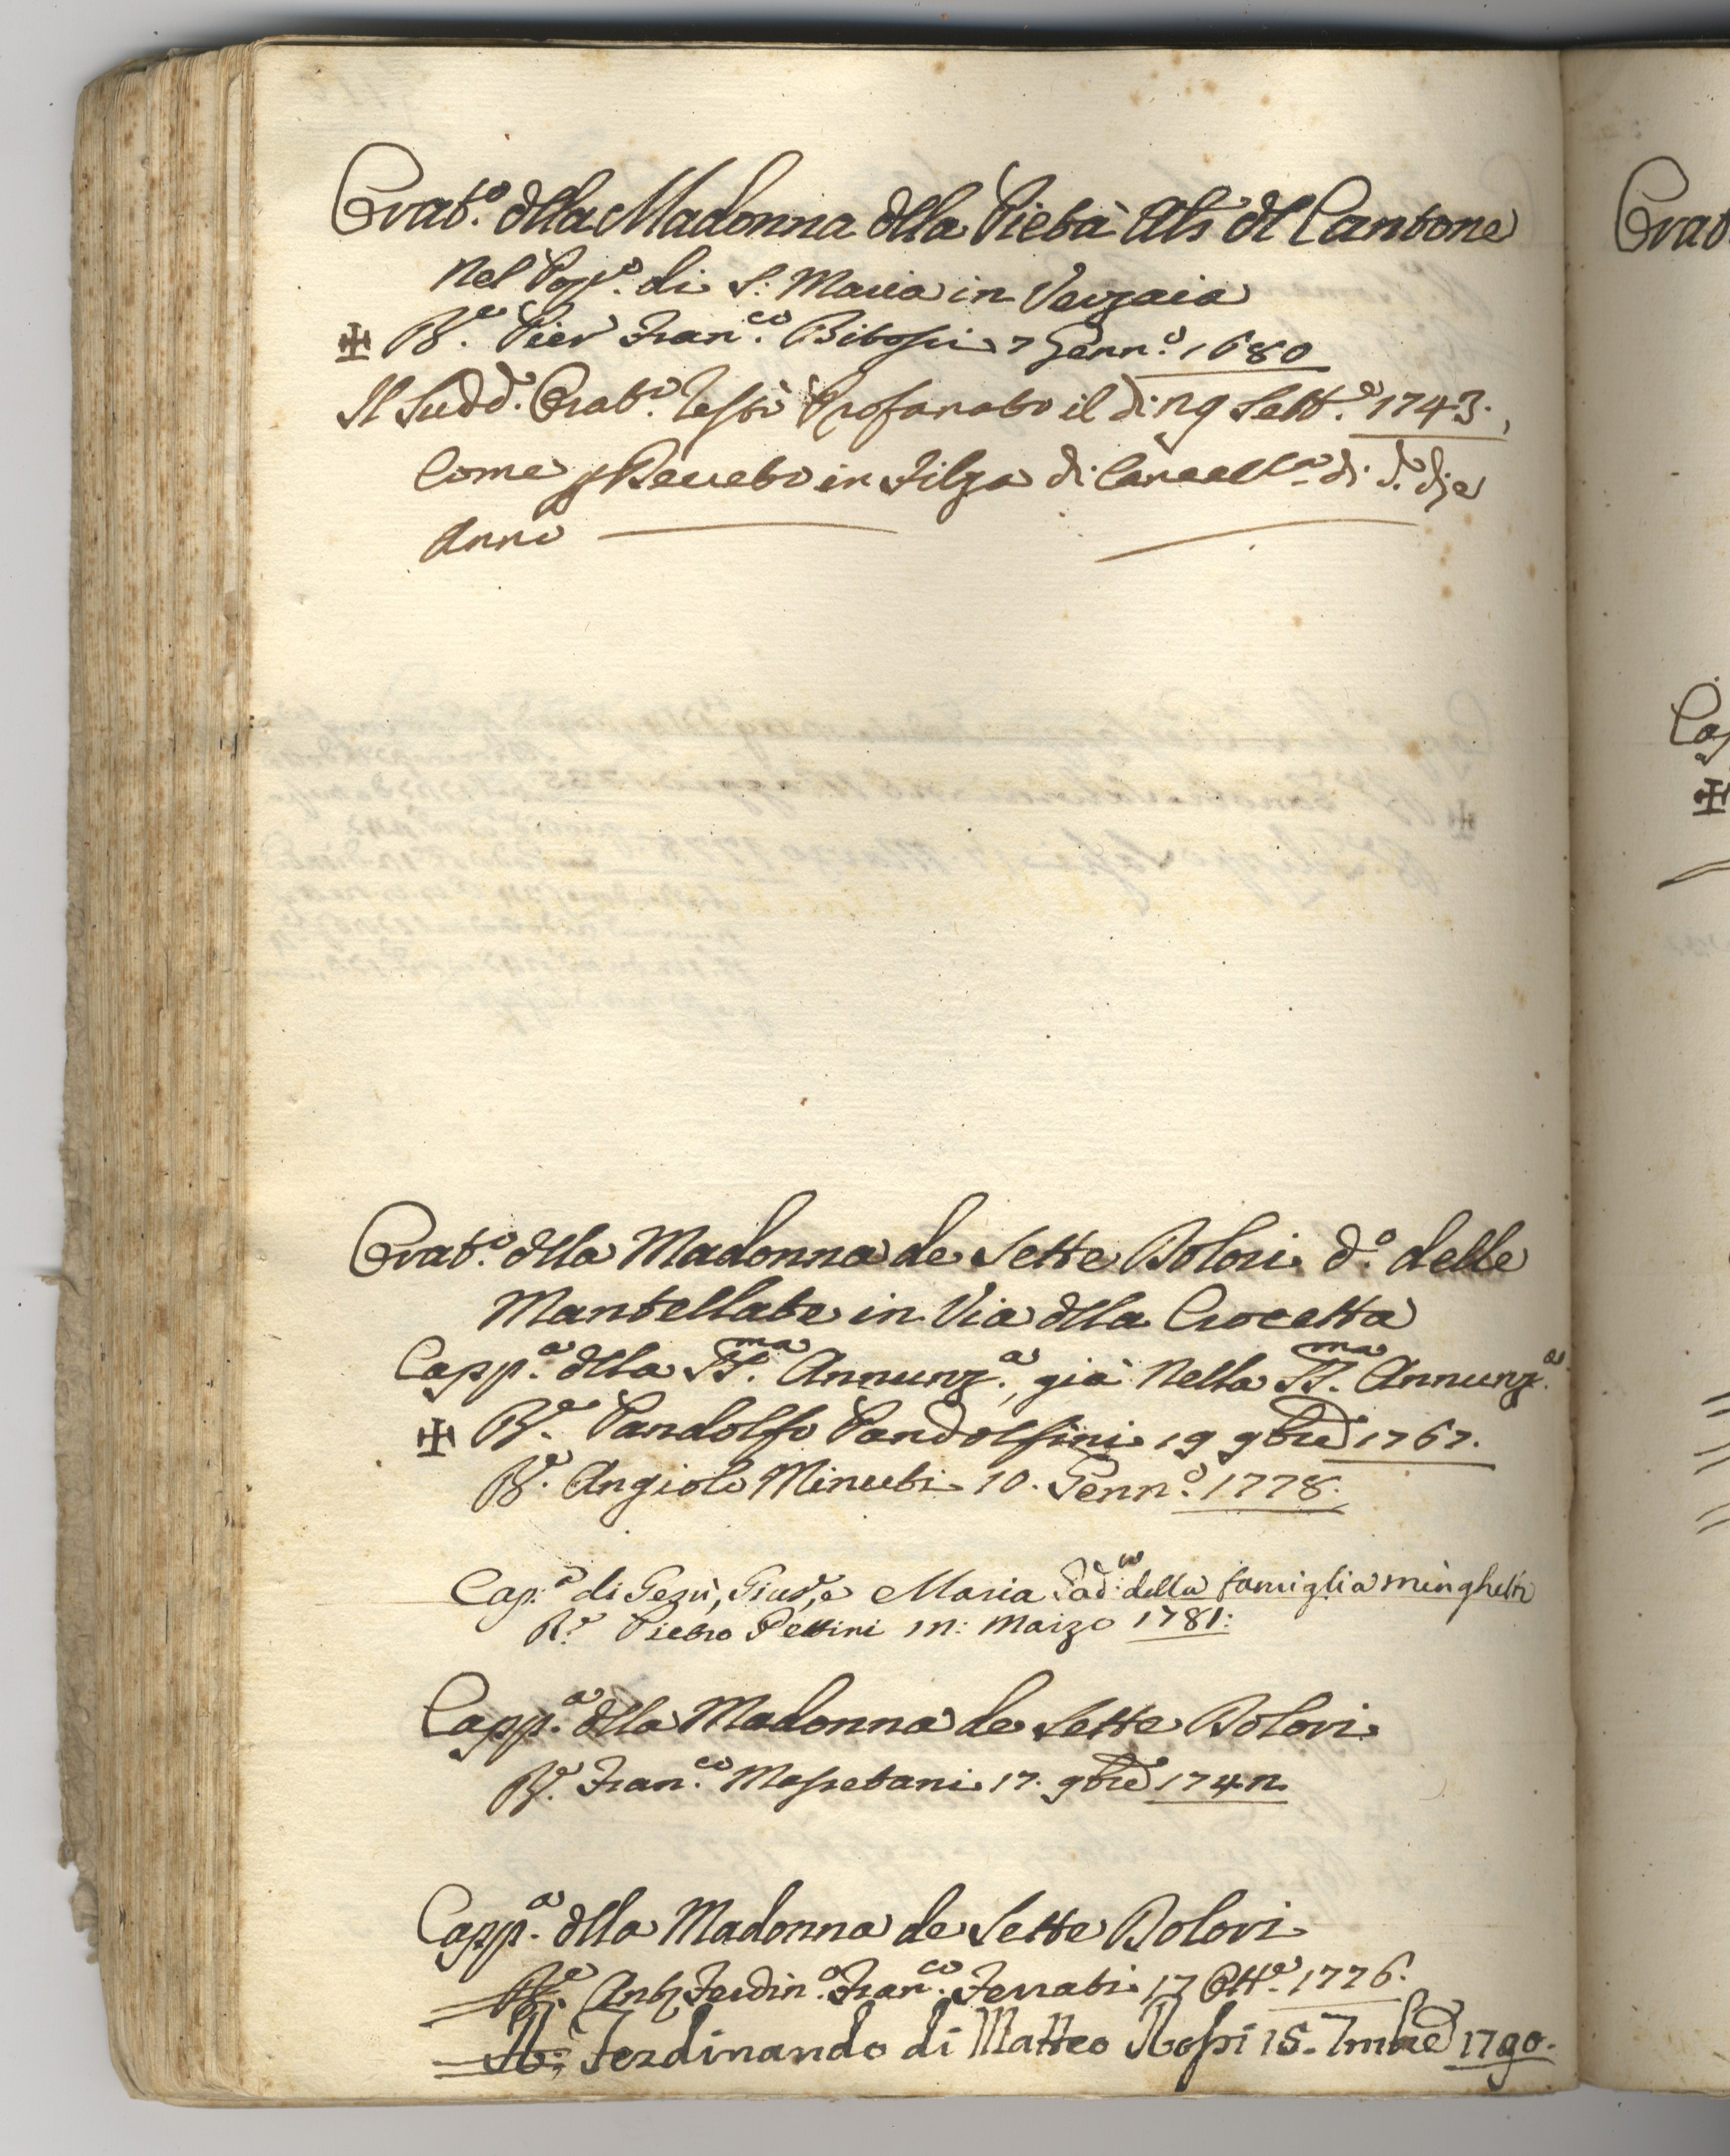 Orat.º dlla Madonna dlla Pietà als dl Cantone
nel Pop.º di S: Maria in Verzaia
✠ R.e Pier Fran.co Bitossi 7 Genn.º 1680
Il Sudd.º Orat.º restò Profanato il dì 29 Sett.e 1743.,
Come p Decreto in Filza di Cancell.a di d.º dì e
Anno
Orat.º dlla Madonna de Sette Dolori d.º delle
Mantellate in Via dlla Crocetta
Capp.a dlla SS.ma Annunz.a, già nella SS.ma Annunz.a
✠ R.e Pandolfo Pandolfini 19 9bre 1767.
R.e Angiolo Minuti 10. Genn.º 1778.
Cap.a di Gesù, Gius.e, e Maria Pad.to della famiglia minghetti
R.e Pietro Pettini 12: Marzo 1781:
Capp.a dlla Madonna de Sette Dolori
R.e Fran.co Massetani 17. 9bre 1742
Capp.a dlla Madonna de Sette Dolori
R.e Ant. Ferdin.º Fran.co Ferrati 17 Ott.e 1776.
R.e Ferdinando di Matteo Rossi 15. 7mbre 1790.
Orat
Cap
✠